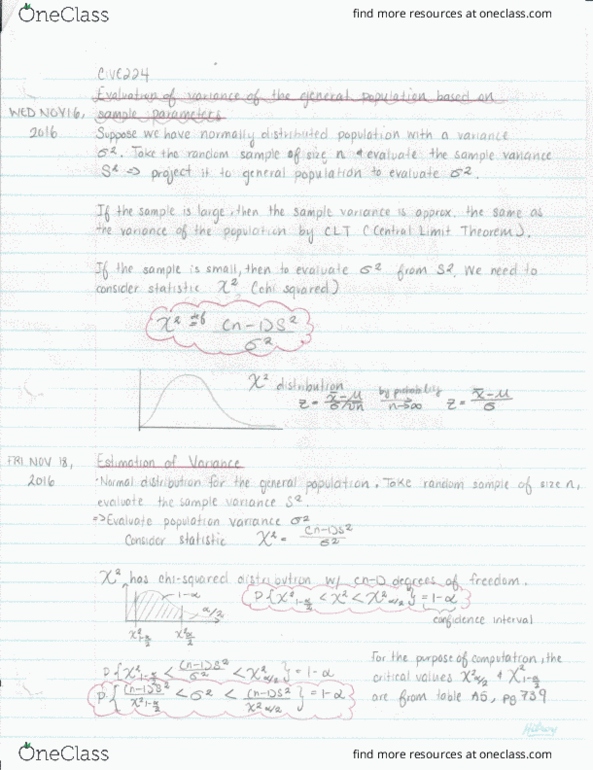 OneClass
find more resources at oneclass.com
CIVE224
Evaluation of variance of the general population based on
WED NOV 16, sample parameters
2016 Suppose we have normally distributed population with a variance
σ². Take the random sample of size n & evaluate the sample variance
S² => project it to general population to evaluate σ².
If the sample is large, then the sample variance is approx. the same as
the variance of the population by CLT (Central Limit Theorem).
If the sample is small, then to evaluate σ² from S², we need to
consider statistic χ² (chi squared)
χ² def (n-1)S² / σ²
χ² distribution
z = x̄-μ / σ/√n by probability n→∞ z = x̄-μ / σ
FRI NOV 18, Estimation of Variance
2016 • Normal distribution for the general population. Take random sample of size n,
evaluate the sample variance S².
=> Evaluate population variance σ²
Consider statistic χ² = (n-1)S² / σ²
χ² has chi-squared distribution w/ (n-1) degrees of freedom.
1-α α/2
P{χ²1-α/2 < χ² < χ²α/2} = 1-α
confidence interval
χ²1-α/2 χ²α/2
P{χ²1-α/2 < (n-1)S² / σ² < χ²α/2} = 1-α
P{(n-1)S² / χ²1-α/2 < σ² < (n-1)S² / χ²α/2} = 1-α
For the purpose of computation, the
critical values χ²α/2 & χ²1-α/2
are from table A5, pg 739
OneClass
find more resources at oneclass.com